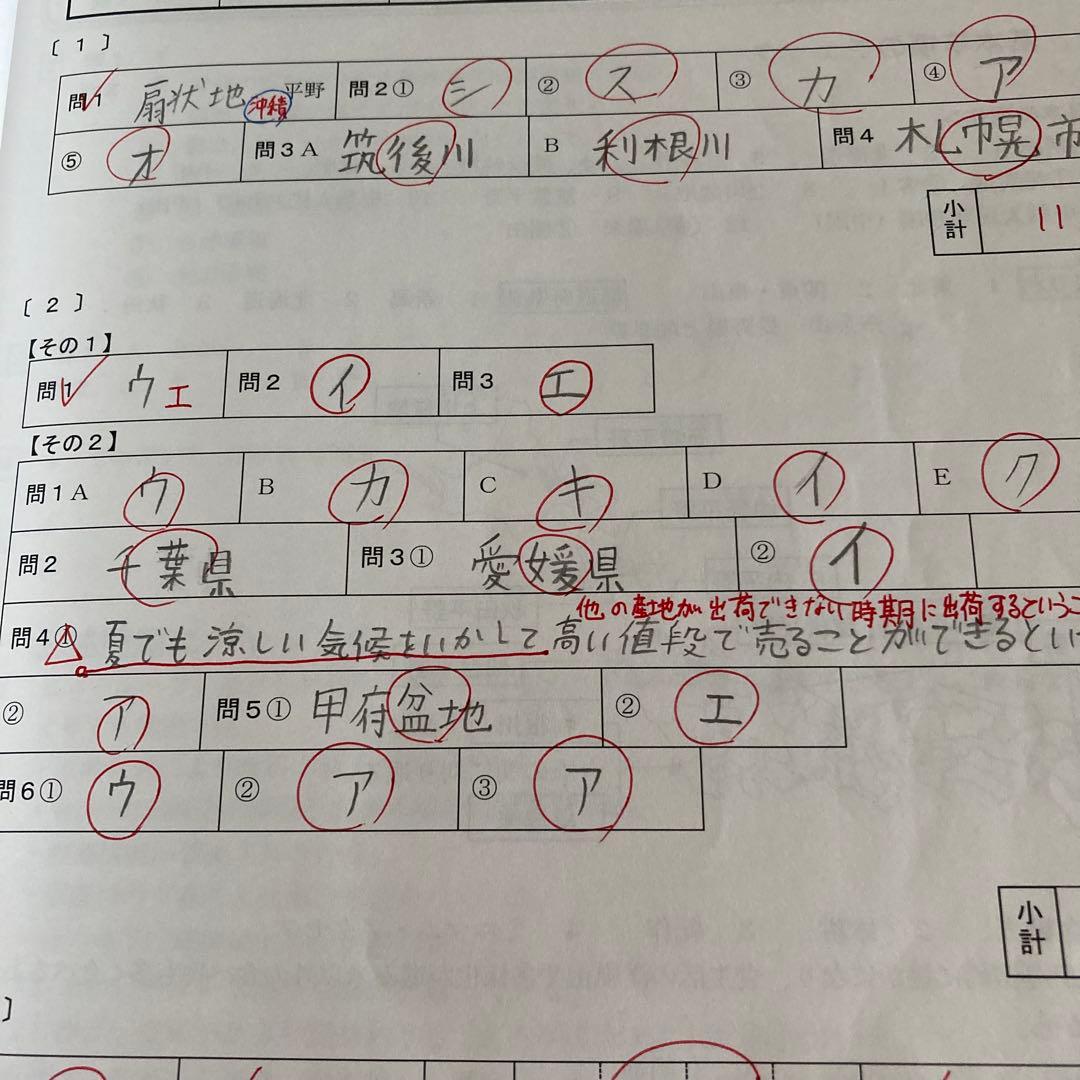 〔１〕
問1 扇状地 沖積 平野 問2① シ ② ス ③ カ ④ ア
⑤ オ 問3 A 筑後川 B 利根川 問4 札幌市
小計 11
〔２〕
【その１】
問1 ウ エ 問2 イ 問3 エ
【その２】
問1 A ウ B カ C キ D イ E ク
問2 千葉県 問3① 愛媛県 ② イ
他の産地が出荷できない時期に出荷するというこ
問4① 夏でも涼しい気候をいかして高い値段で売ることができるとい
② ア 問5① 甲府盆地 ② エ
問6① ウ ② ア ③ ア
小計
〕